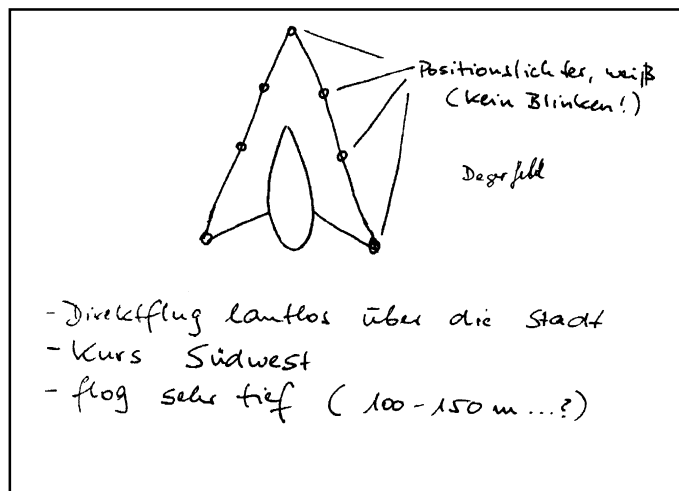 Positionslichter, weiß
(kein Blinken!)
Degerfeld
- Direktflug lautlos über die Stadt
- Kurs Südwest
- flog sehr tief (100-150 m ...?)